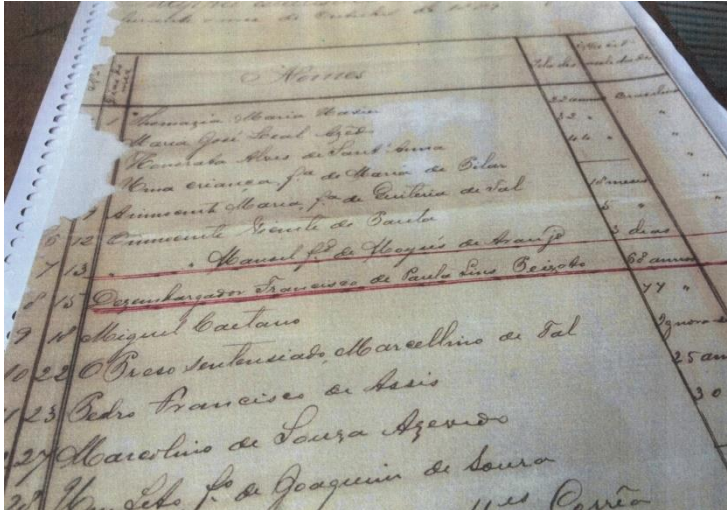 de Outubro de
Dias do mez Nomes
1 Thomazia Maria 22 annos
Maria José Leal Azedo 32 "
Honorata Alves de Sant'Anna 44 "
Uma criança, fª de Maria do Pilar
9 Innocente Maria, fª de Quiteria de Tal 18 mezes
6 12 Innocente Vicente de Paula 5 "
7 13 " Manoel fº de Moysés de Araujo 3 dias
8 15 Dezembargador Francisco de Paula Lins Peixoto 68 annos
9 18 Miguel Caetano 77 "
10 22 O Preso sentensiado, Marcellino de Tal Ignora
23 Pedro Francisco de Assis 25 an
27 Marcolino de Souza Azevedo 30
28 Um Feto fº de Joaquim de Souza
Corrêa